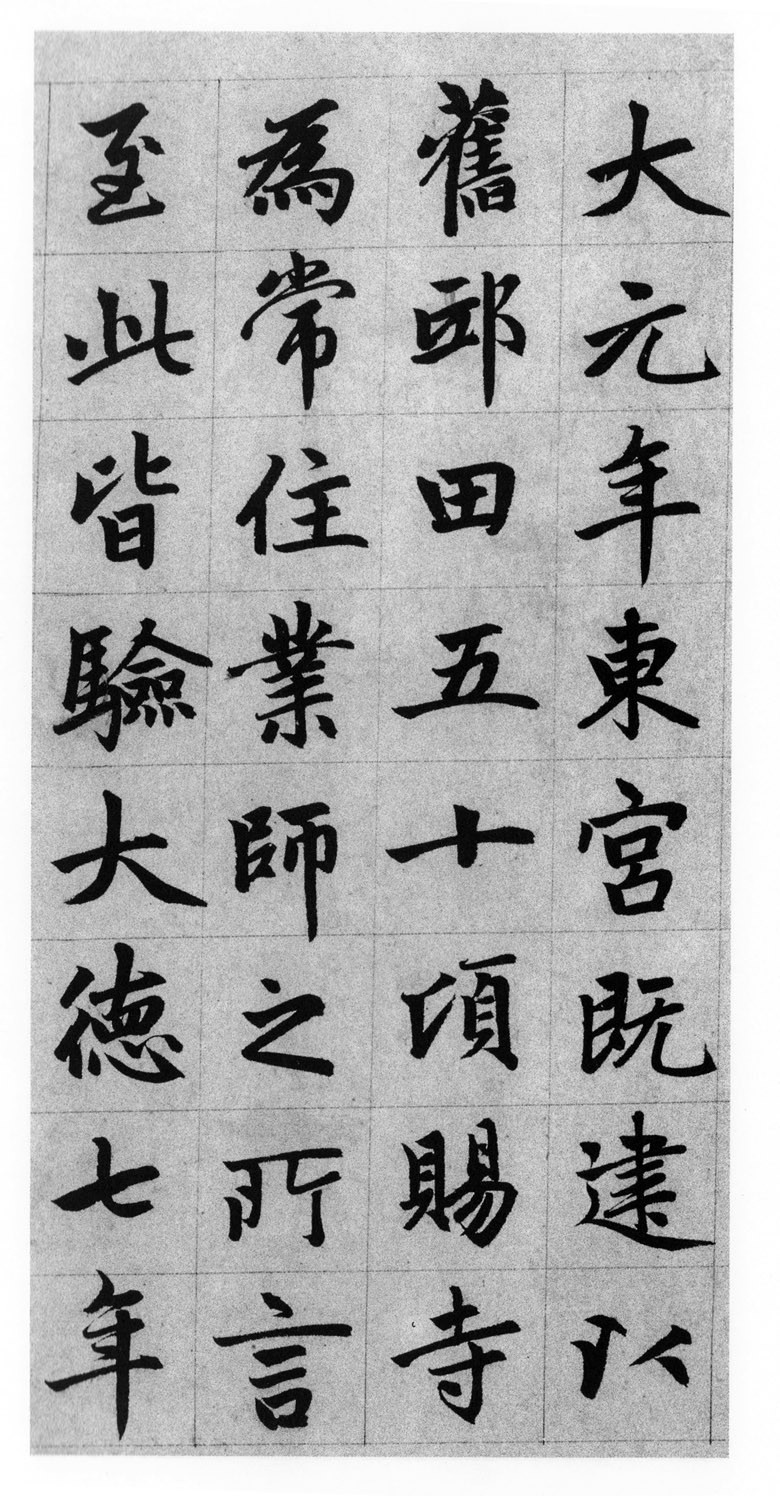 大元年東宮既建以
舊邸田五十頃賜寺
為常住業師之所言
至此皆驗大德七年